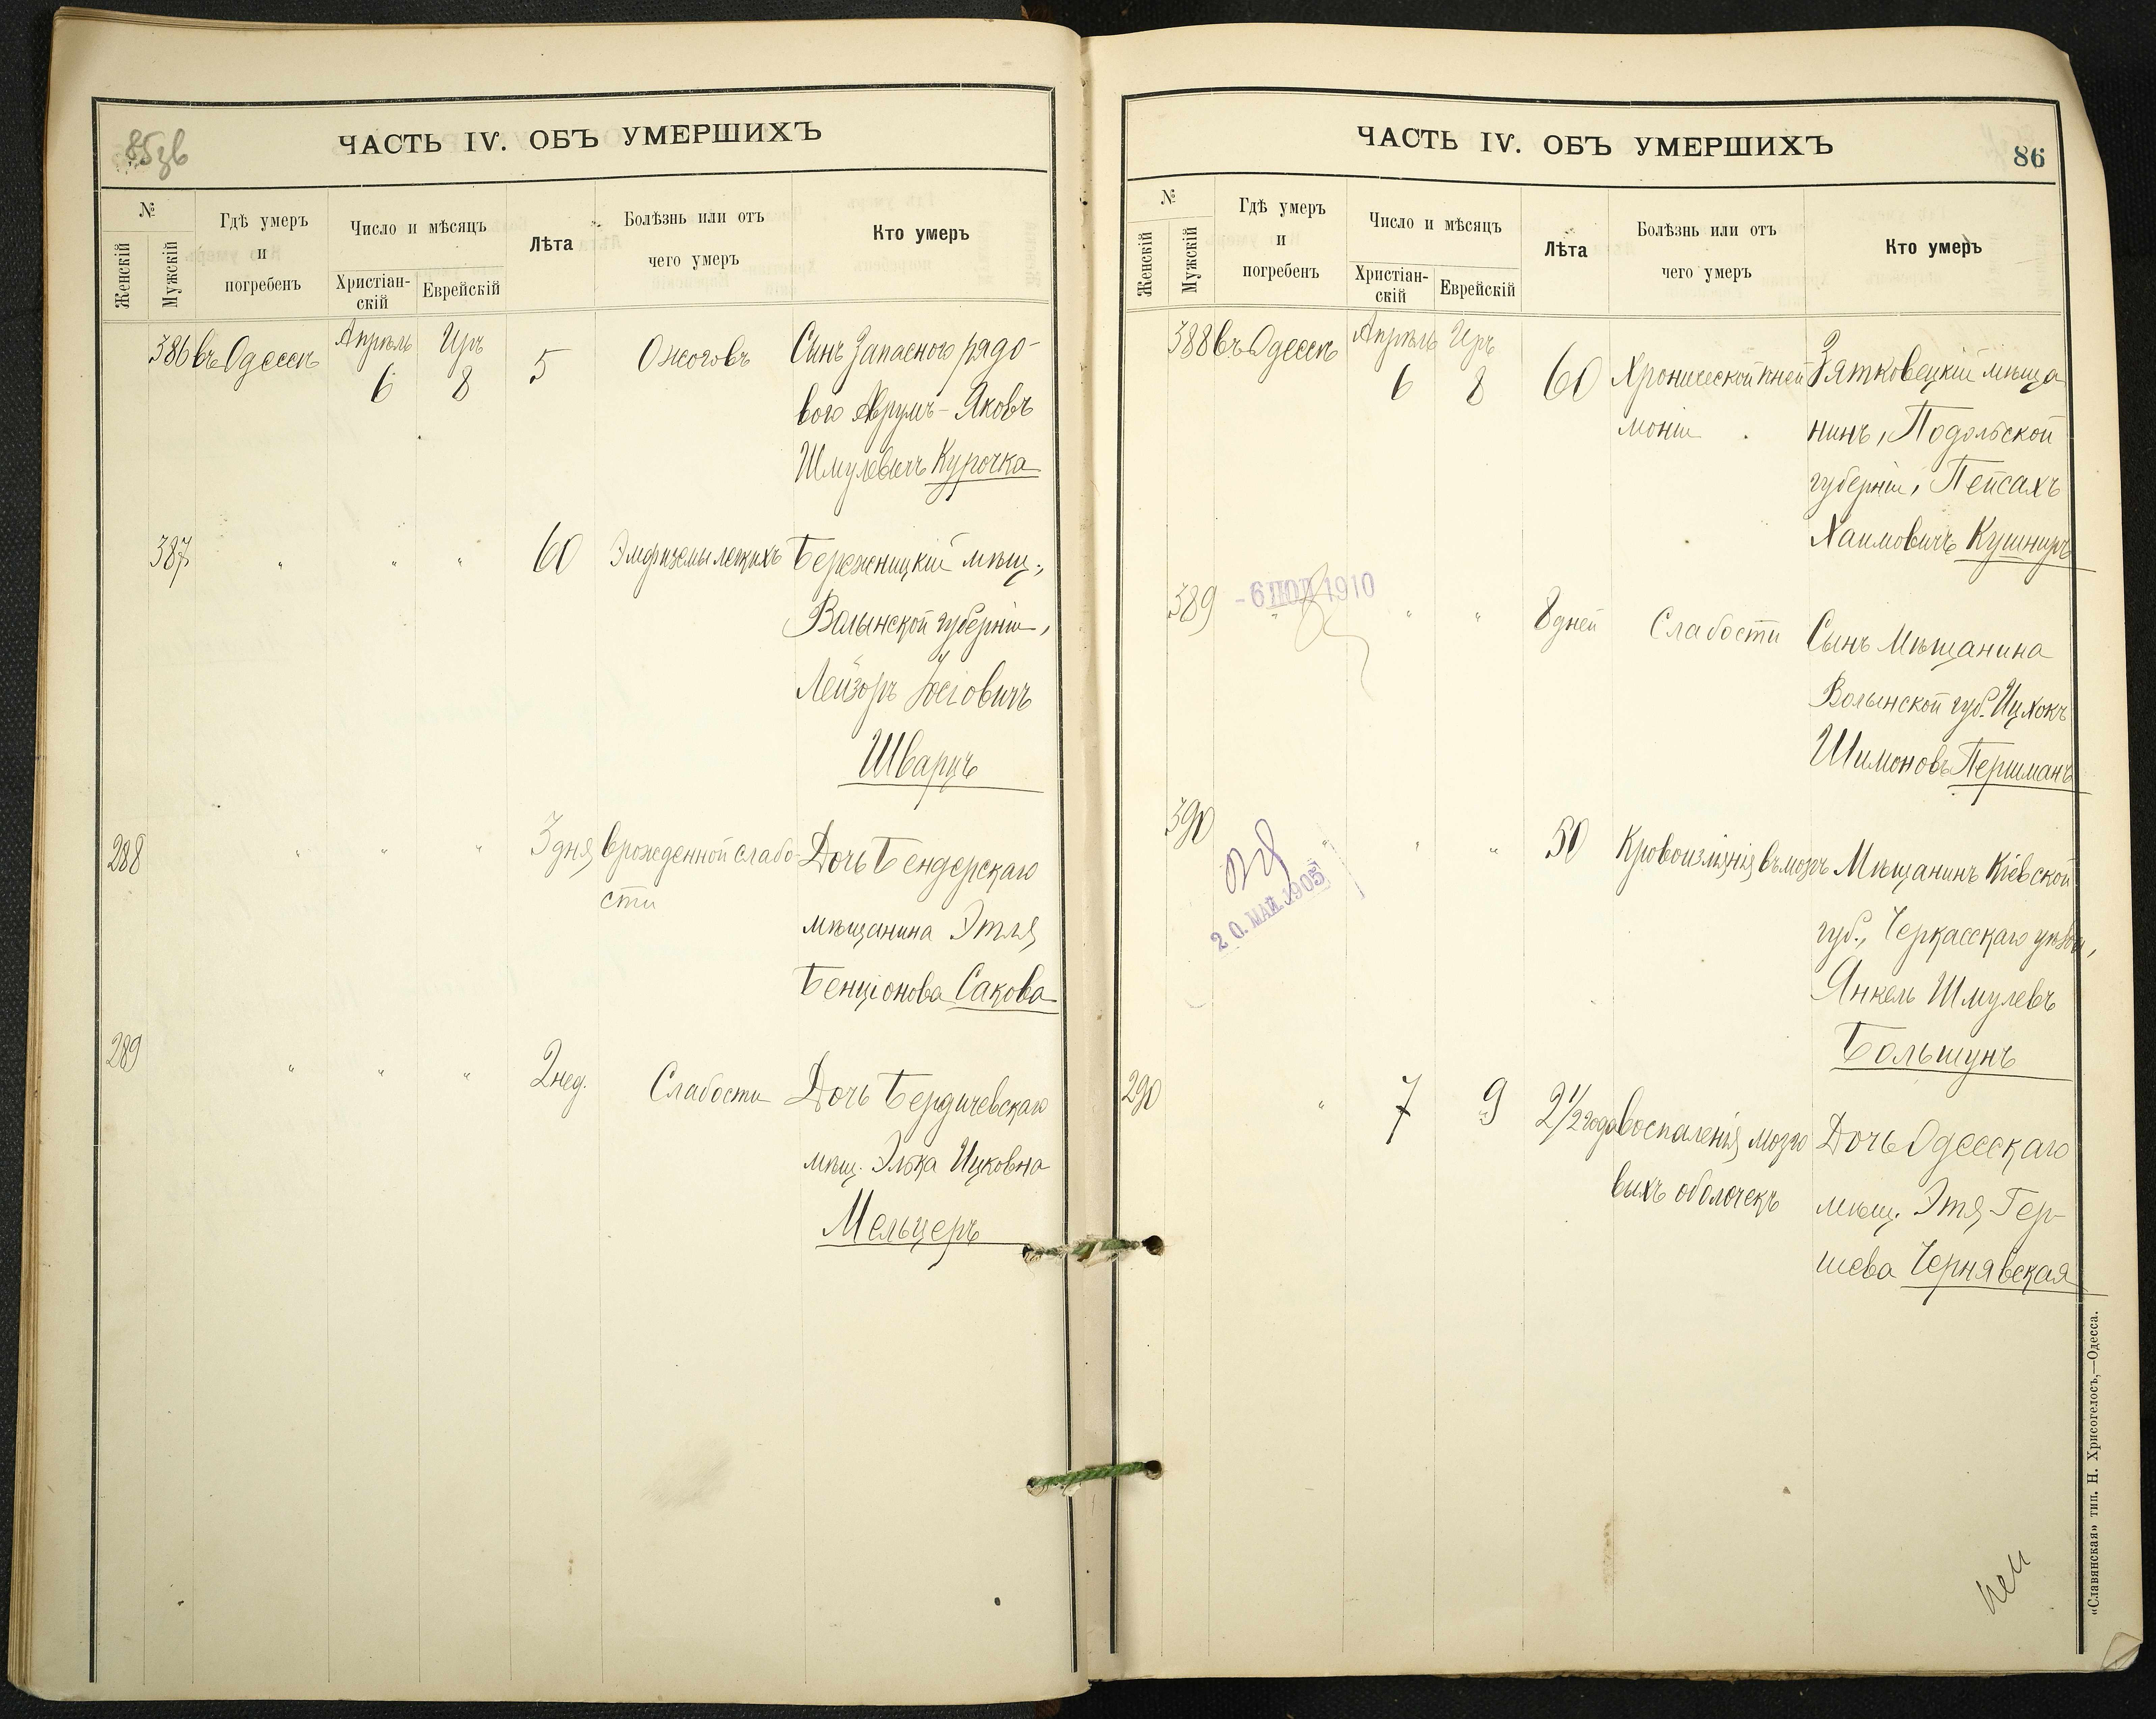 85зв
ЧАСТЬ IV. ОБЪ УМЕРШИХЪ
№
Женскій
Мужскій
Гдѣ умеръ
и
погребенъ
Число и мѣсяцъ
Христіан-
скій
Еврейскій
Лѣта
Болѣзнь или отъ
чего умеръ
Кто умеръ
386 въ Одессѣ Апрѣль Иръ 5 Ожоговъ Сынъ Запасного рядо-
6 8
вого Аврумъ-Яковъ
Шмулевичъ Курочка
387 " " " 60 Эмфиземы легкихъ Бережницкій мѣщ.,
Волынской губерніи,
Лейзоръ Іосіовичъ
Шварцъ
288 " " " 3 дня врожденной слабо- Дочь Бендерскаго
сти
мѣщанина Этля
Бенціонова Сакова
289 " " " 2 нед. Слабости Дочь Бердичевскаго
мѣщ. Элька Ицковна
Мельцеръ
ЧАСТЬ IV. ОБЪ УМЕРШИХЪ
86
№
Женскій
Мужскій
Гдѣ умеръ
и
погребенъ
Число и мѣсяцъ
Христіан-
скій
Еврейскій
Лѣта
Болѣзнь или отъ
чего умеръ
Кто умеръ
388 въ Одессѣ Апрѣль Иръ 60 Хронической пнев Зятковецкій мѣща
6 8
моніи нинъ, Подольской
губерніи, Пейсахъ
Хаимовичъ Кушниръ
389 " " " 8 дней Слабости Сынъ Мѣщанина
- 6 ІЮЛ 1910
Волынской губ. Ицхокъ
Шимоновъ Першманъ
390 " " " 50 Кровоизліянія въ мозгъ Мѣщанинъ Кіевской
20. МАЙ. 1905
губ., Черкасскаго уѣзда,
Янкель Шмулевъ
Большунъ
290 " 7 9 2 1/2 года воспаленія мозго Дочь Одесскаго
выхъ оболочекъ мѣщ. Этя Гер-
шева Чернявская
«Славянская» тип. Н. Хрисогелосъ,—Одесса.